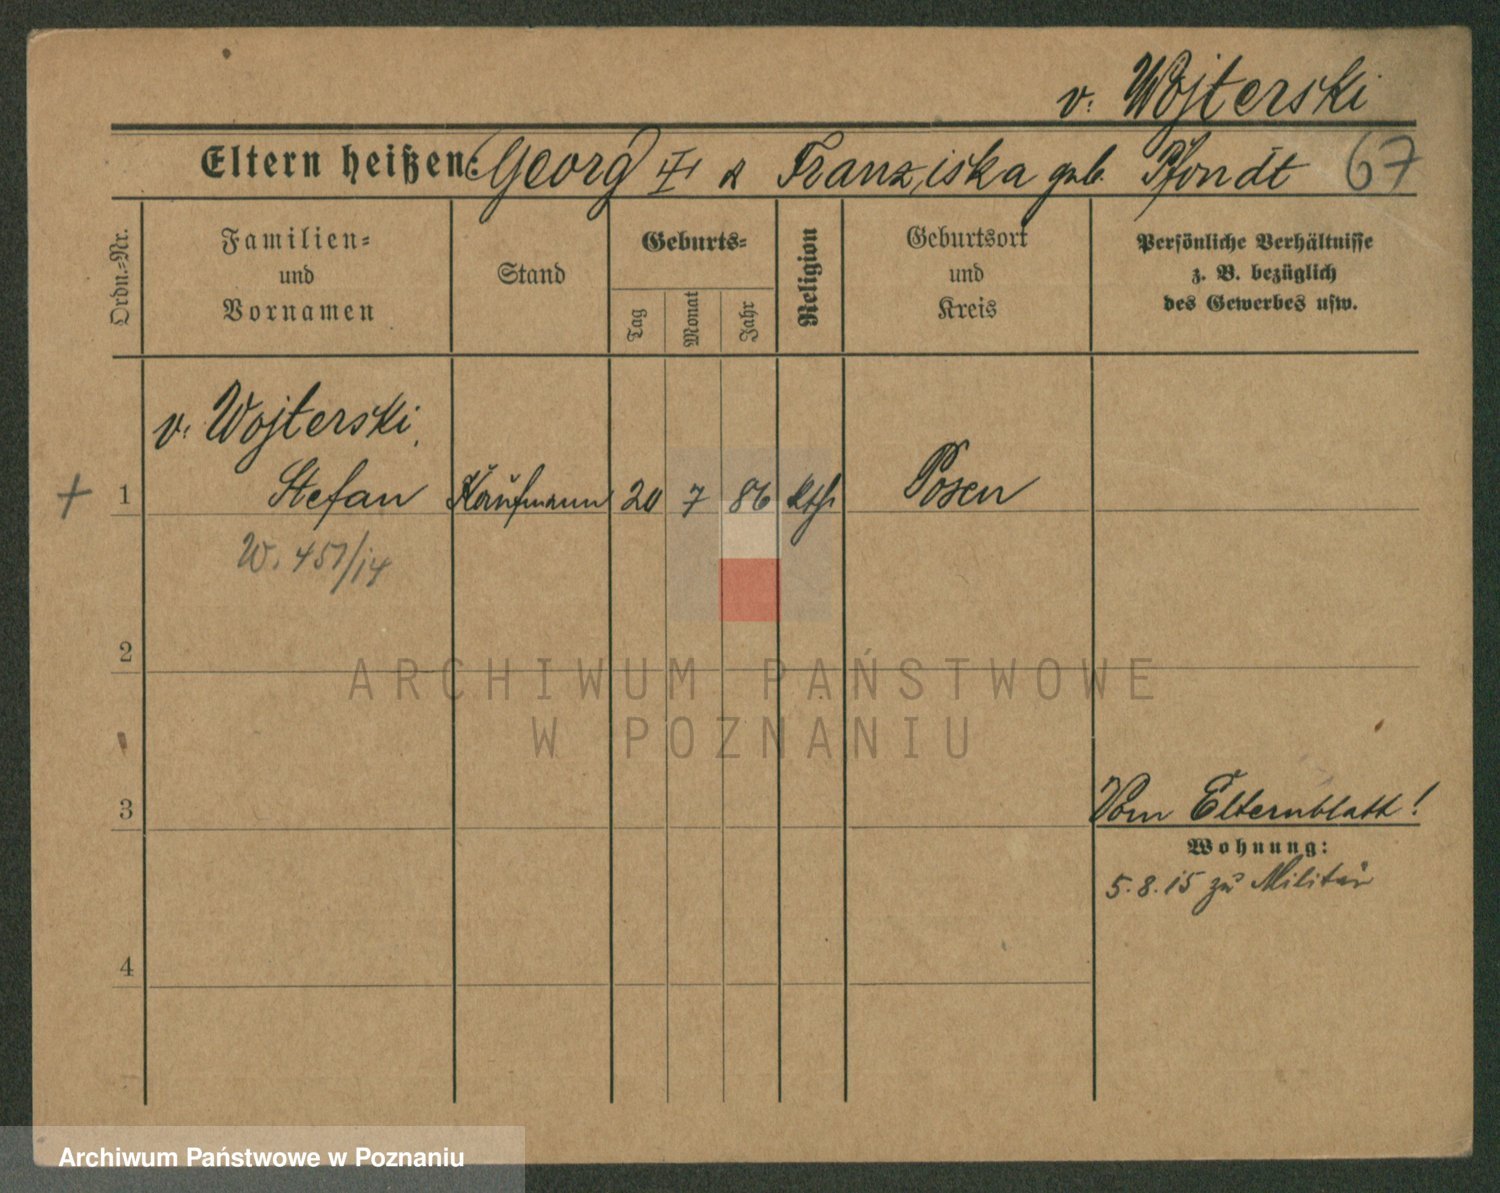 v. Wojterski
Eltern heißen: Georg & Franziska geb. Pfondt 67
Ordn.-Nr.
Familien-
und
Vornamen
Stand
Geburts-
Tag
Monat
Jahr
Religion
Geburtsort
und
Kreis
Persönliche Verhältnisse
z. B. bezüglich
des Gewerbes usw.
v. Wojterski,
+ 1 Stefan Kaufmann 20 7 86 kth. Posen
W. 457/14
2
ARCHIWUM PAŃSTWOWE
W POZNANIU
3
Vom Elternblatt!
Wohnung:
5.8.15 zu Militär
4
Archiwum Państwowe w Poznaniu